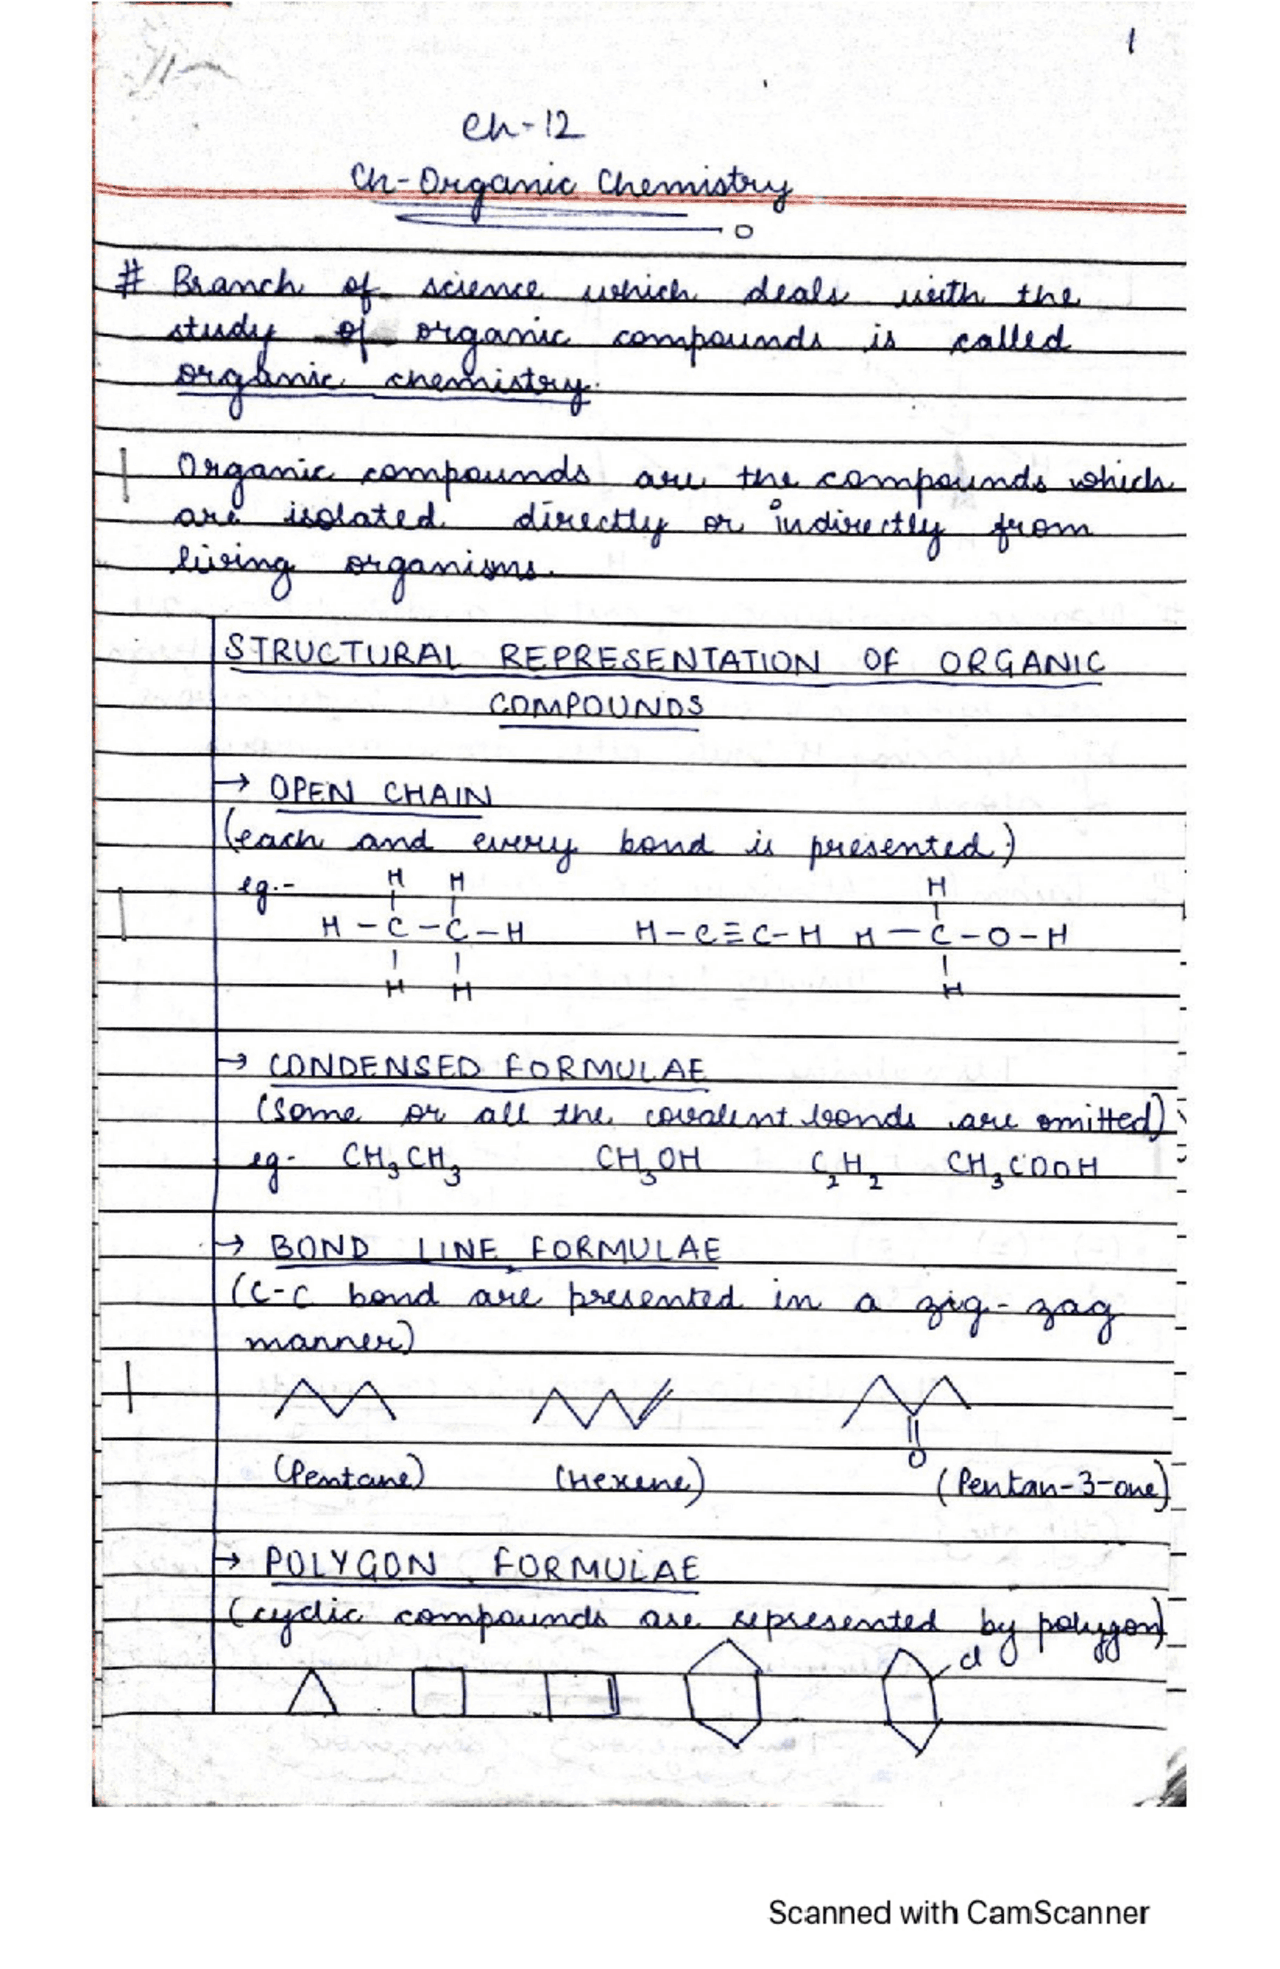 1
Ch-12
Ch-Organic Chemistry
# Branch of science which deals with the
study of organic compounds is called
organic chemistry.
Organic compounds are the compounds which
are isolated directly or indirectly from
living organisms.
STRUCTURAL REPRESENTATION OF ORGANIC
COMPOUNDS
→ OPEN CHAIN
(each and every bond is presented)
eg.-
H H H
H-C-C-H H-C≡C-H H-C-O-H
H H H
→ CONDENSED FORMULAE
(some or all the covalent bonds are omitted)
eg- CH₃CH₃ CH₃OH C₂H₂ CH₃COOH
→ BOND LINE FORMULAE
(C-C bond are presented in a zig-zag
manner)
O
(Pentane) (Hexene) (Pentan-3-one)
→ POLYGON FORMULAE
(cyclic compounds are represented by polygon)
Cl
Scanned with CamScanner